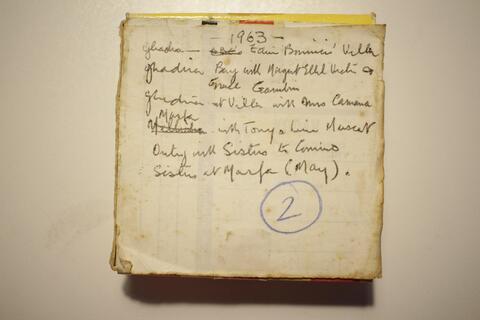 - 1963 -
Ghadira - Edwin Bonnici' Villa
Ghadira Bay with Margaret Ethel Victor &
Grace Gambin
Ghadira at Villa with Mrs Camana
Marfa
with Tony & Lina Muscat
Outing with Sisters to Comino
Sisters at Marfa (May).
2